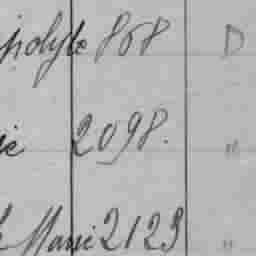 polyte 868 D
ie 2098. "
Marie 2123 "